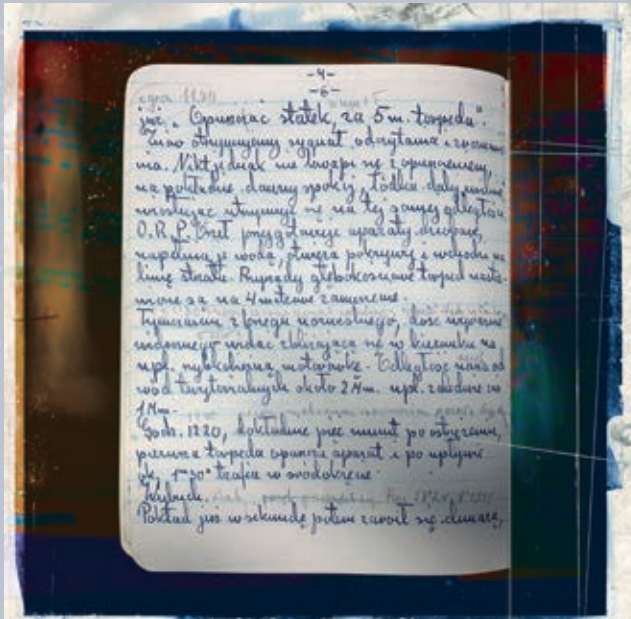 -4-
-6-
już. „Opuszczać statek, za 5 m. torpeda".
Znowu otrzymujemy sygnał odczytania i zrozumie
nia. Nikt jednak nie kwapi się z opuszczeniem,
na pokładzie dawny spokój, łódka dalej
wiosłując utrzymuje się na tej samej odległości
O.R.P. Orzeł przygotowuje aparaty dziobowe,
napełnia je wodą, otwiera pokrywy i wchodzi na
linię strzału. Przyrządy głębokościowe torped nasta-
wione są na 4 metrowe zanurzenie.
Tymczasem z brzegu norweskiego, dość wyraźnie
widocznego widać zbliżającą się w kierunku na
npl. szybkobieżną motorówkę. Odległość nasza od
wód terytorialnych około 2 Mm. npl. zaledwie
1 Mm.
Godz. 1220, dokładnie pięć minut po ostrzeżeniu,
pierwsza torpeda opuszcza aparat i po upływie
ok. trafia w śródokręcie.
Wybuch.
Pokład już w sekundę potem zaroił się